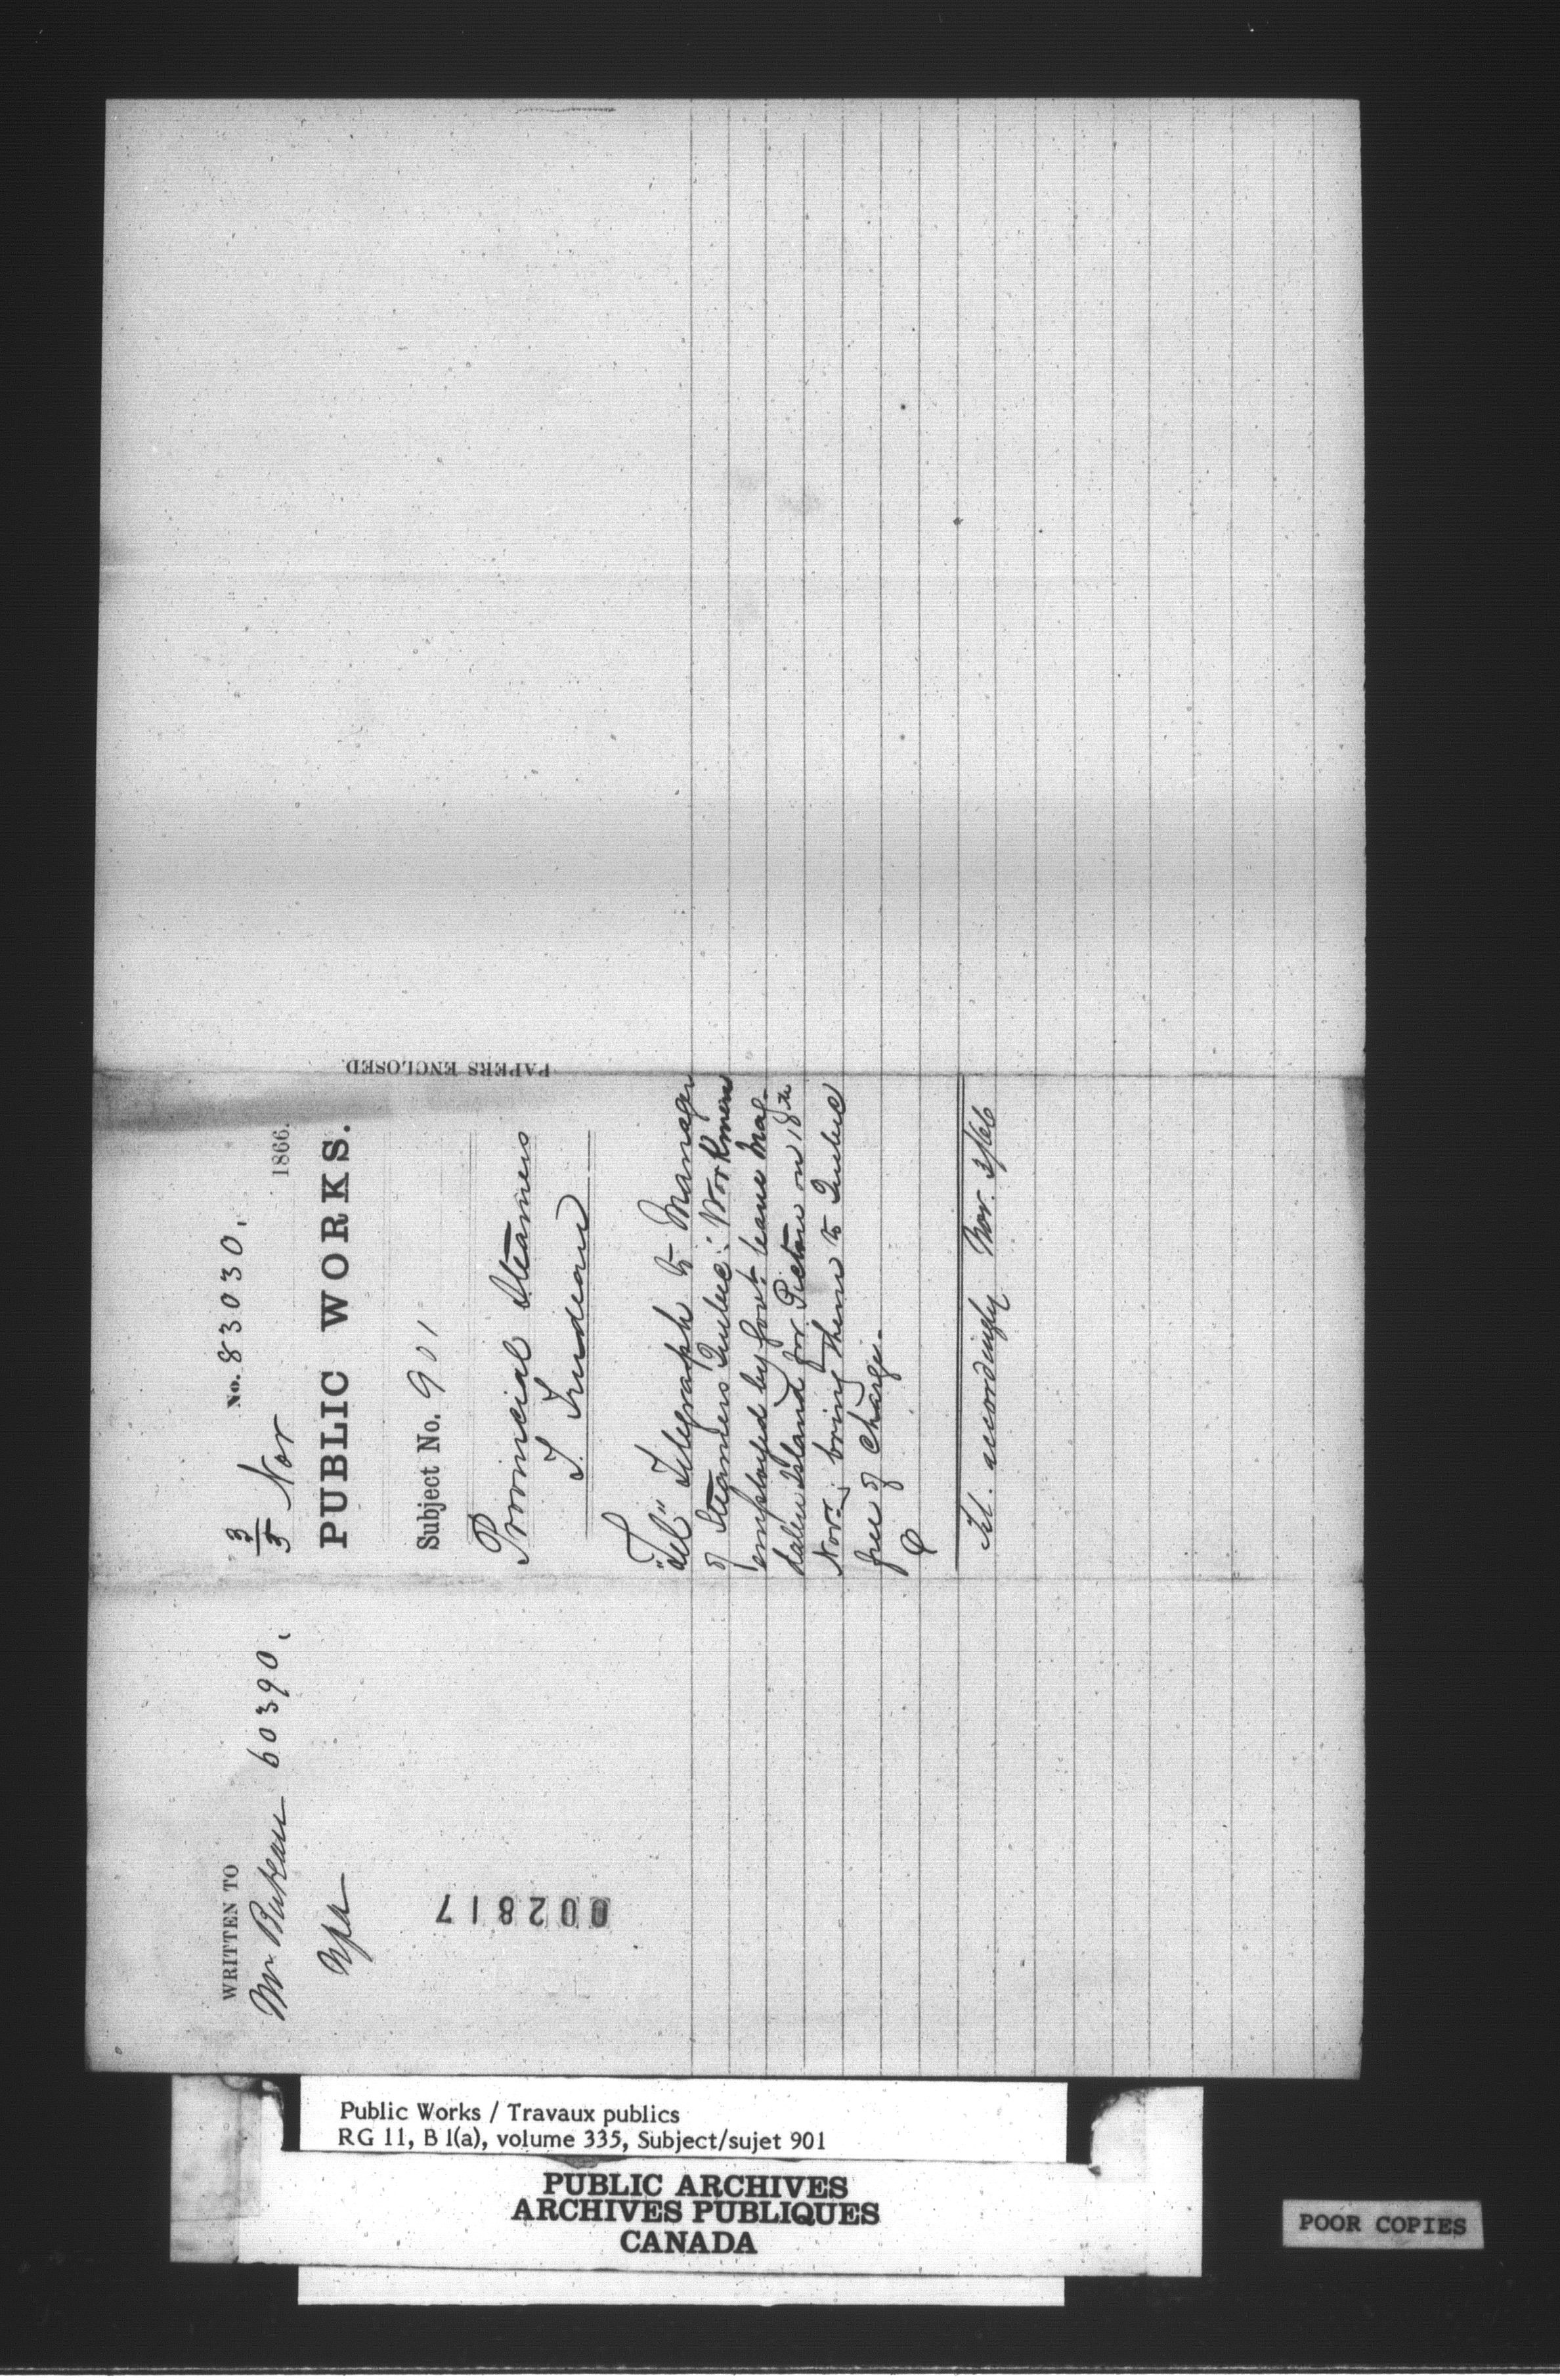 WRITTEN TO
Mr Buteau 60390.
002817
3/3 Nov No. 83030.
1866.
PUBLIC WORKS.
Subject No. 901
Provincial Steamers
T. Trudeau
"Tel" Telegraph to Manager
of Steamers Quebec: Workmen
employed by Govt. leave Mag-
dalen Island for Pictou on 18th
Novr; bring them to Quebec
free of Charge.
Tel. accordingly Nov. 3/66
PAPERS ENCLOSED.
Public Works / Travaux publics
RG 11, B 1(a), volume 335, Subject/sujet 901
PUBLIC ARCHIVES
ARCHIVES PUBLIQUES
CANADA
POOR COPIES